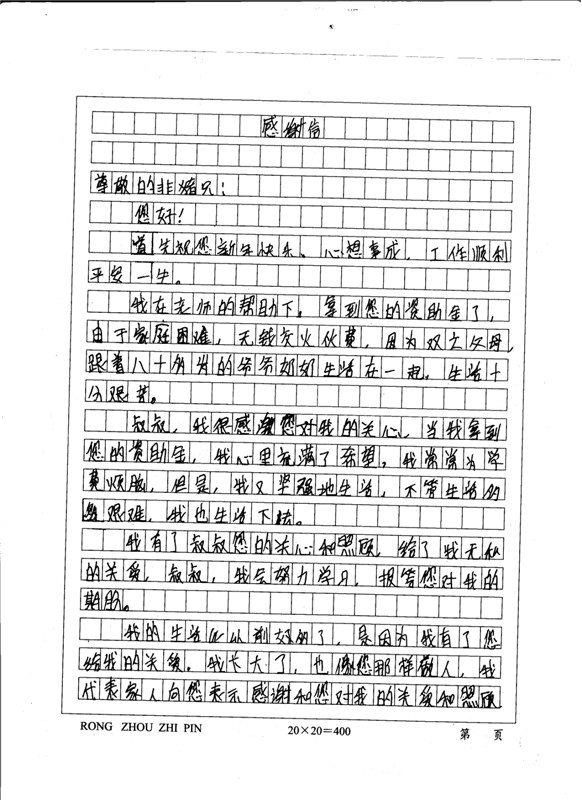 感谢信
尊敬的非嫡兄：
您好！
首先祝您新年快乐、心想事成，工作顺利
平安一生。
我在老师的帮助下，拿到您的资助金了，
由于家庭困难，无钱交火伙费，因为双亡父母，
跟着八十多岁的爷爷奶奶生活在一起，生活十
分艰苦。
叔叔，我很感谢您对我的关心，当我拿到
您的资助金，我心里充满了希望，我常常为学
费烦脑，但是，我又坚强地生活，不管生活多
艰难，我也生活下去。
我有了叔叔您的关心和照顾，给了我无私
的关爱，叔叔，我会努力学习，报答您对我的
期盼。
我的生活比以前好多了，是因为我有了您
给我的关爱。我长大了，也像您那样做人，我
代表家人向您表示感谢和您对我的关爱和照顾
RONG ZHOU ZHI PIN 20×20=400 第 页